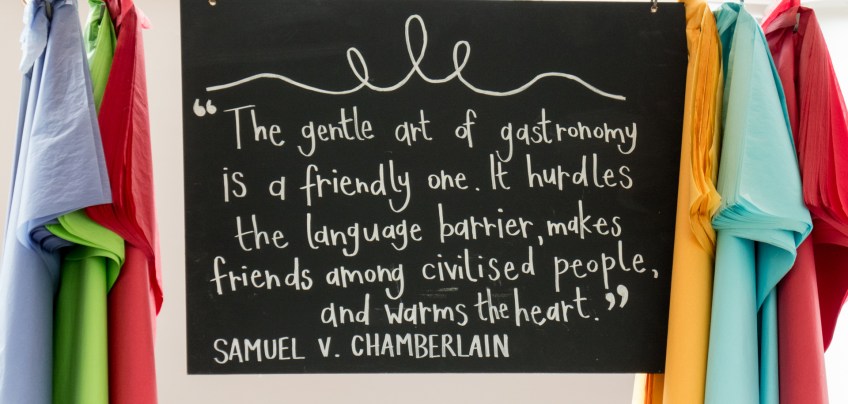 “The gentle art of gastronomy
is a friendly one. It hurdles
the language barrier, makes
friends among civilised people,
and warms the heart.”
SAMUEL V. CHAMBERLAIN